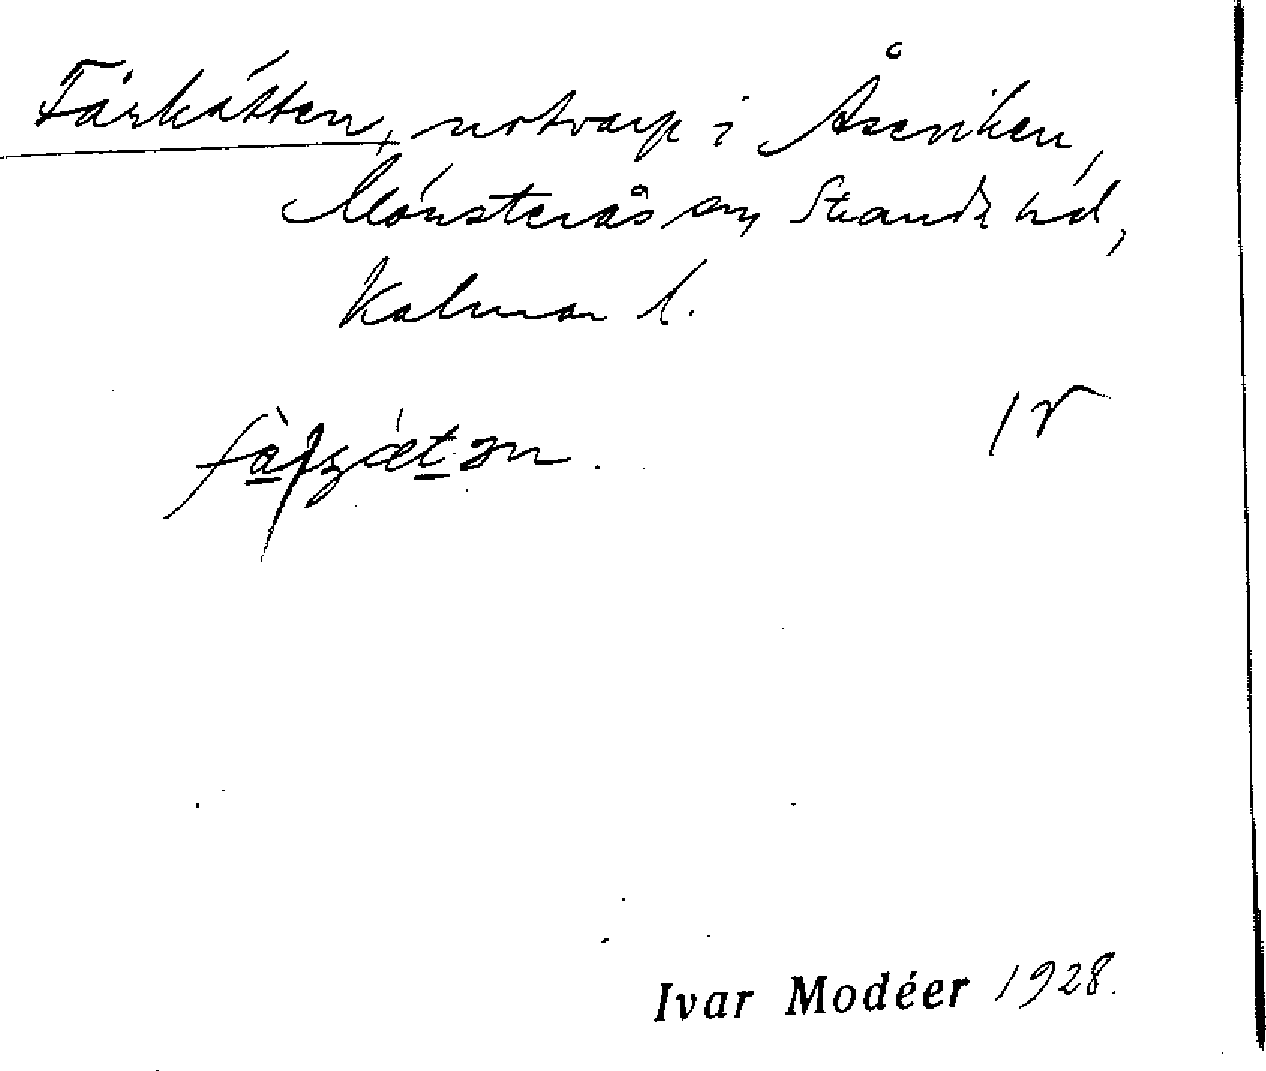 Fårkätten, notvarp i Åseviken,
Mönsterås sn, Strands hd,
Kalmar l.
1 r
Ivar Modéer 1928.